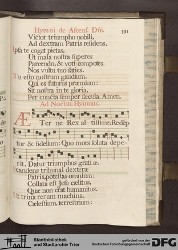 Hymni de Ascens. Dñi. 191
Victor triumpho nobili
Ad dextram Patris residens.
Ipsa te cogat pietas,
Ut mala nostra superes
Parcendo, & voti compotes
Nos vultu tuo saties.
Tu esto nostrum gaudium,
Qui es futurus præmium:
Sit nostra in te gloria,
Per cuncta semper sæcula. Amen.
Ad Noctur. Hymnus.
Æ Ter ne Rex al tissime, Redēp
tor & fidelium: Quo mors soluta depe
rit, Datur triumphus gratiæ.
Scandens tribunal dexteræ
Patris potestas omnium
Collata est Jesu cœlitus,
Quæ non erat humanitus.
Ut trina rerum machina
Cœlestium, terrestrium:
Stadtbibliothek
und Stadtarchiv Trier
gefördert von der
Deutschen Forschungsgemeinschaft
DFG